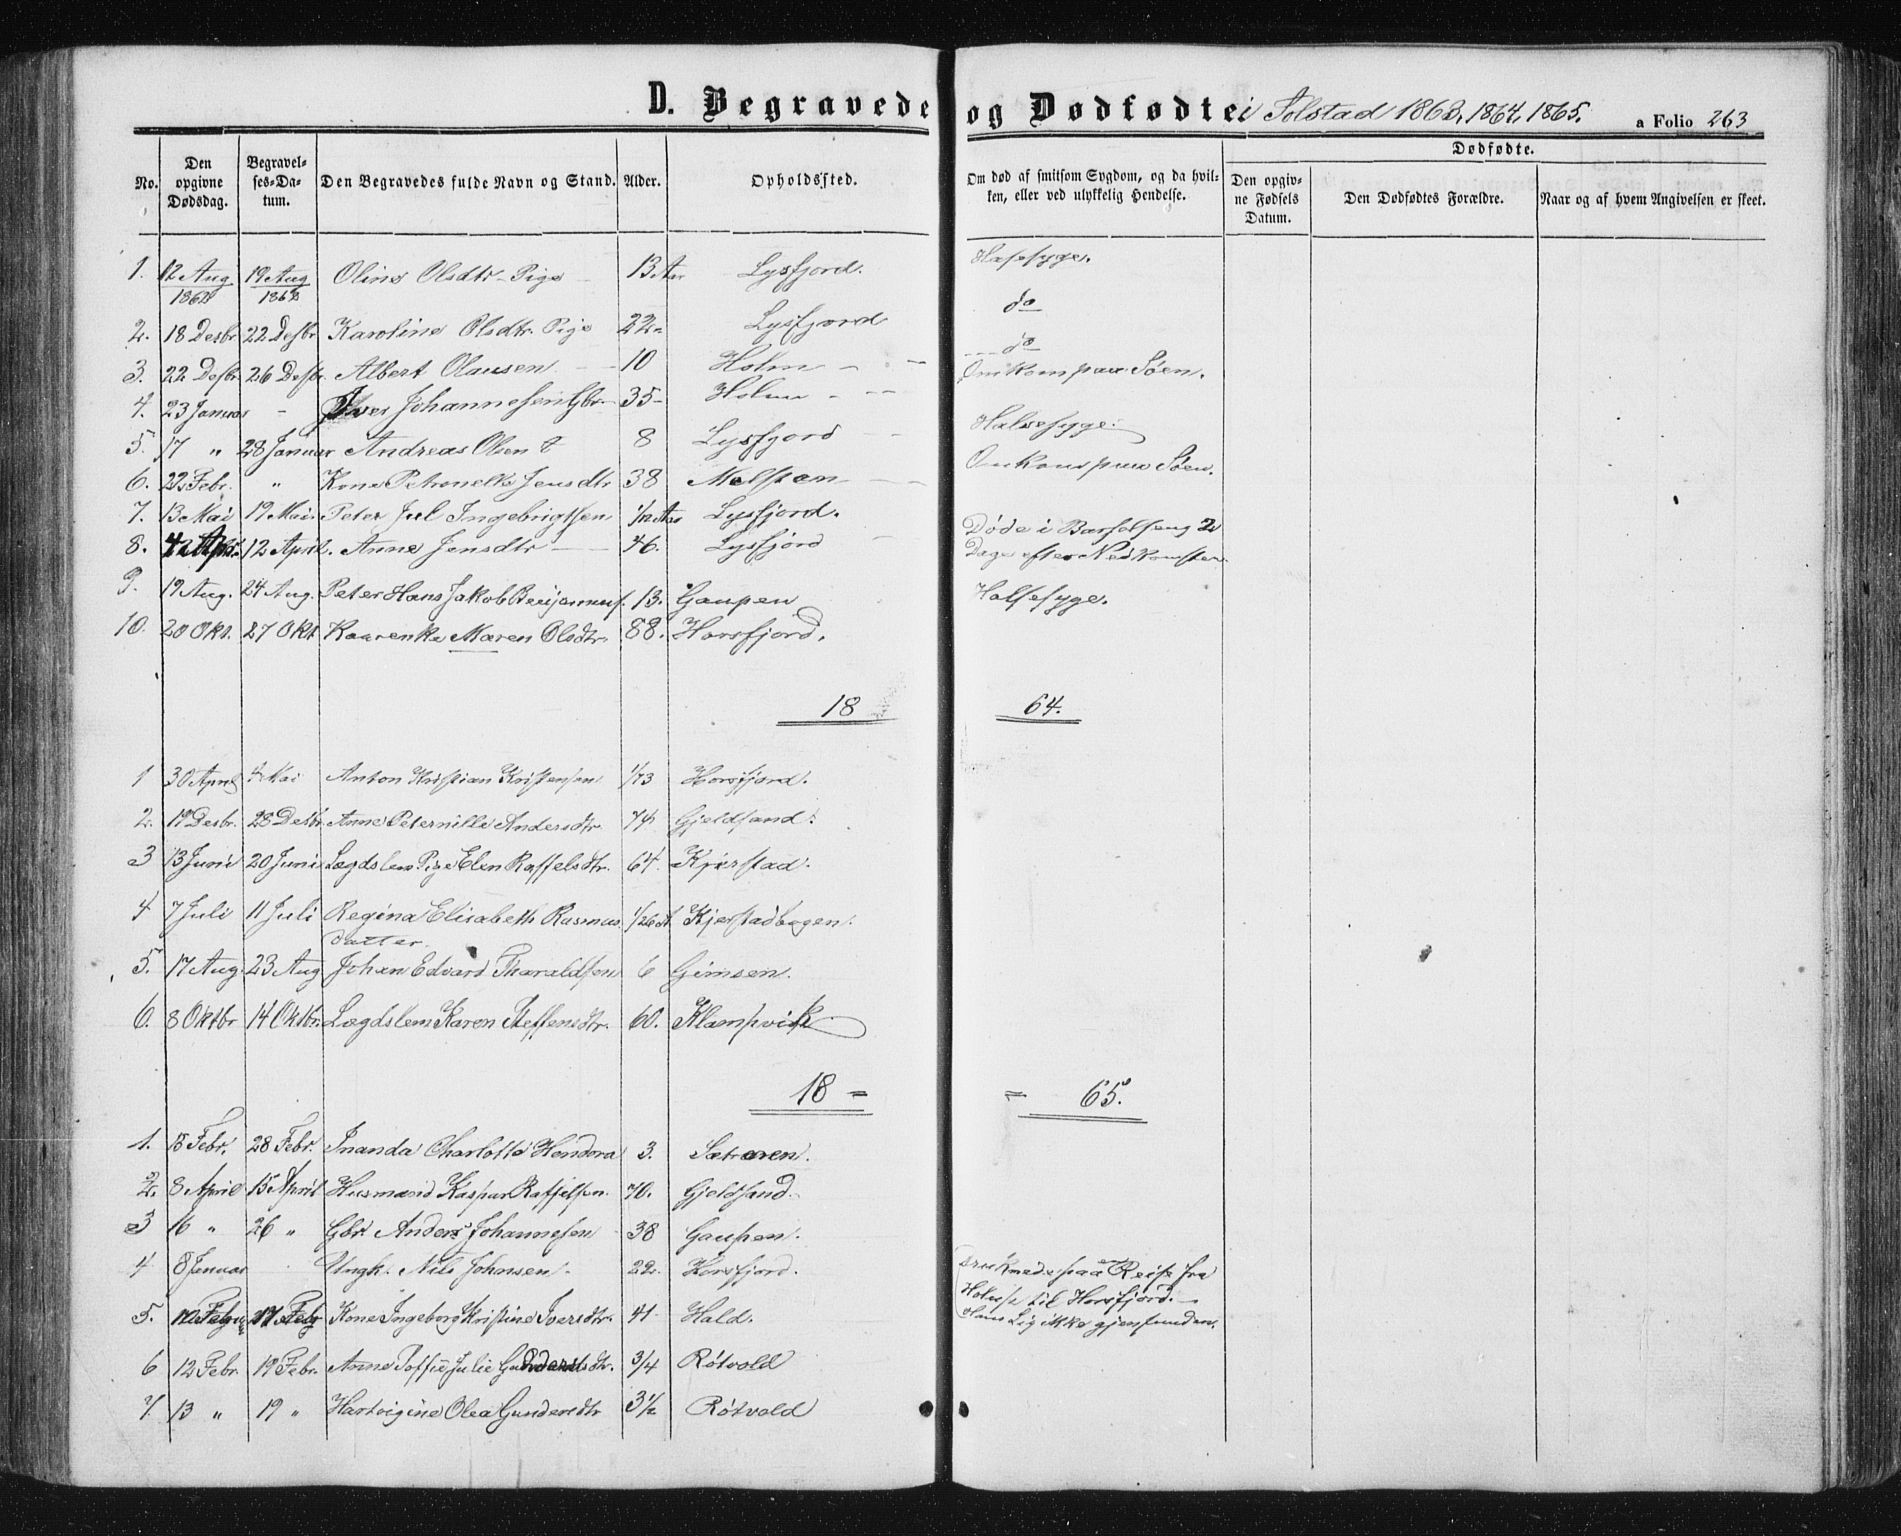 D. Begravede og Dødfødte i Solstad 1863, 1864, 1865. a Folio 263
No. Den opgivne Dødsdag. Begravelses-Datum. Den Begravedes fulde Navn og Stand. Alder. Opholdssted. Om død af smitsom Sygdom, og da hvilken, eller ved ulykkelig Hendelse. Dødfødte. Den opgivne Fødsels Datum. Den Dødfødtes Forældre. Naar og af hvem Angivelsen er skeet.
1. 12 Aug 19 Aug Oline Olsdtr Pige 13 Aar Lysfjord. Halsesyge.
2. 18 Desbr 22 Desbr Karoline Olsdtr. Pige 22 Lysfjord do
3. 22 Desbr 26 Desbr. Albert Olausen 10 Holm do
4. 23 Januar - Iver Johannesen Gbr. 35 Holm Omkom paa Søen.
5. 17 " 28 Januar Andreas Olsen 8 Lysfjord Halsesyge.
6. 22 Febr. " Kone Petronelle Jensdtr 38 Melstein Omkom paa Søen.
7. 13 Mai 19 Mai Peter Jul Ingebrigtsen 1/12 Aar Lysfjord.
8. 12 April. Anne Jensdtr 46. Lysfjord Døde i Barselseng 2 Dage efter Nedkomsten
9. 19 Aug. 24 Aug. Peter Hans Jakob Benjamins. 13. Gaupen Halsesyge.
10. 20 Okt. 27 Okt Kaarenka Maren Olsdtr. 88. Horsfjord.
18 64.
1 30 April 4 Mai Anton Kristian Kristensen 1/73 Horsfjord.
2. 19 Desbr. 28 Desbr. Anne Peternille Andersdtr. 74 Gjeldsand.
3 13 Juni 20 Juni Lægdslem Pige Elen Raffelsdtr. 64 Kjerstad.
4 7 Juli 11 Juli Regina Elisabeth Rasmus datter. 1/26 A Kjerstadhagen.
5. 17 Aug. 23 Aug Johan Edvard Tharaldsen 6 Gimsen.
6. 8 Oktbr 14 Oktbr. Lægdslem Karen Steffensdtr. 60. Klampvik
18 = = 65.
1. 18 Febr. 28 Febr. Inanda Charlotta Hendora 3. Sætaren.
2. 8 April 15 April Husmand Kaspar Rafjelsen. 70. Gjeldsand.
3 16 " 26 " Gbr. Anders Johannesen 38 Gaupen.
4 8 Januar Ungk. Nils Johnsen. 22. Horsfjord. Druknede paa en Reise fra Holm til Horsfjord. Hans Lig ikke gjenfunden.
5. 12 Febr. 17 Febr Kone Ingeborg Kristine Iversdtr. 41. Hald.
6 12 Febr. 19 Febr. Anne Soffie Julie Gundersdtr. 3/4 Røtvold
7. 13 " 19 " Hartvigine Olea Gundersdtr 3 1/2 Røtvold